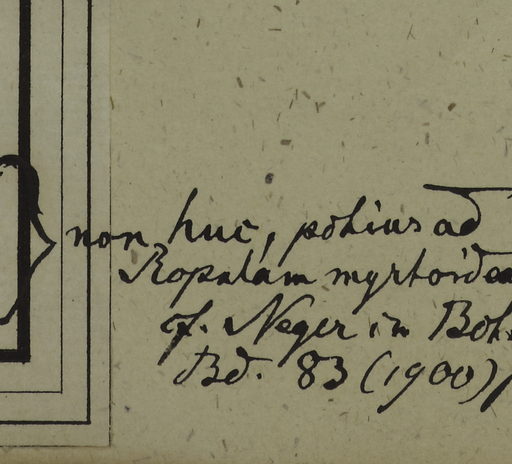 non huc, potius ad
Ropalam myrtoidea
cf. Neger in Bot.
Bd. 83 (1900)